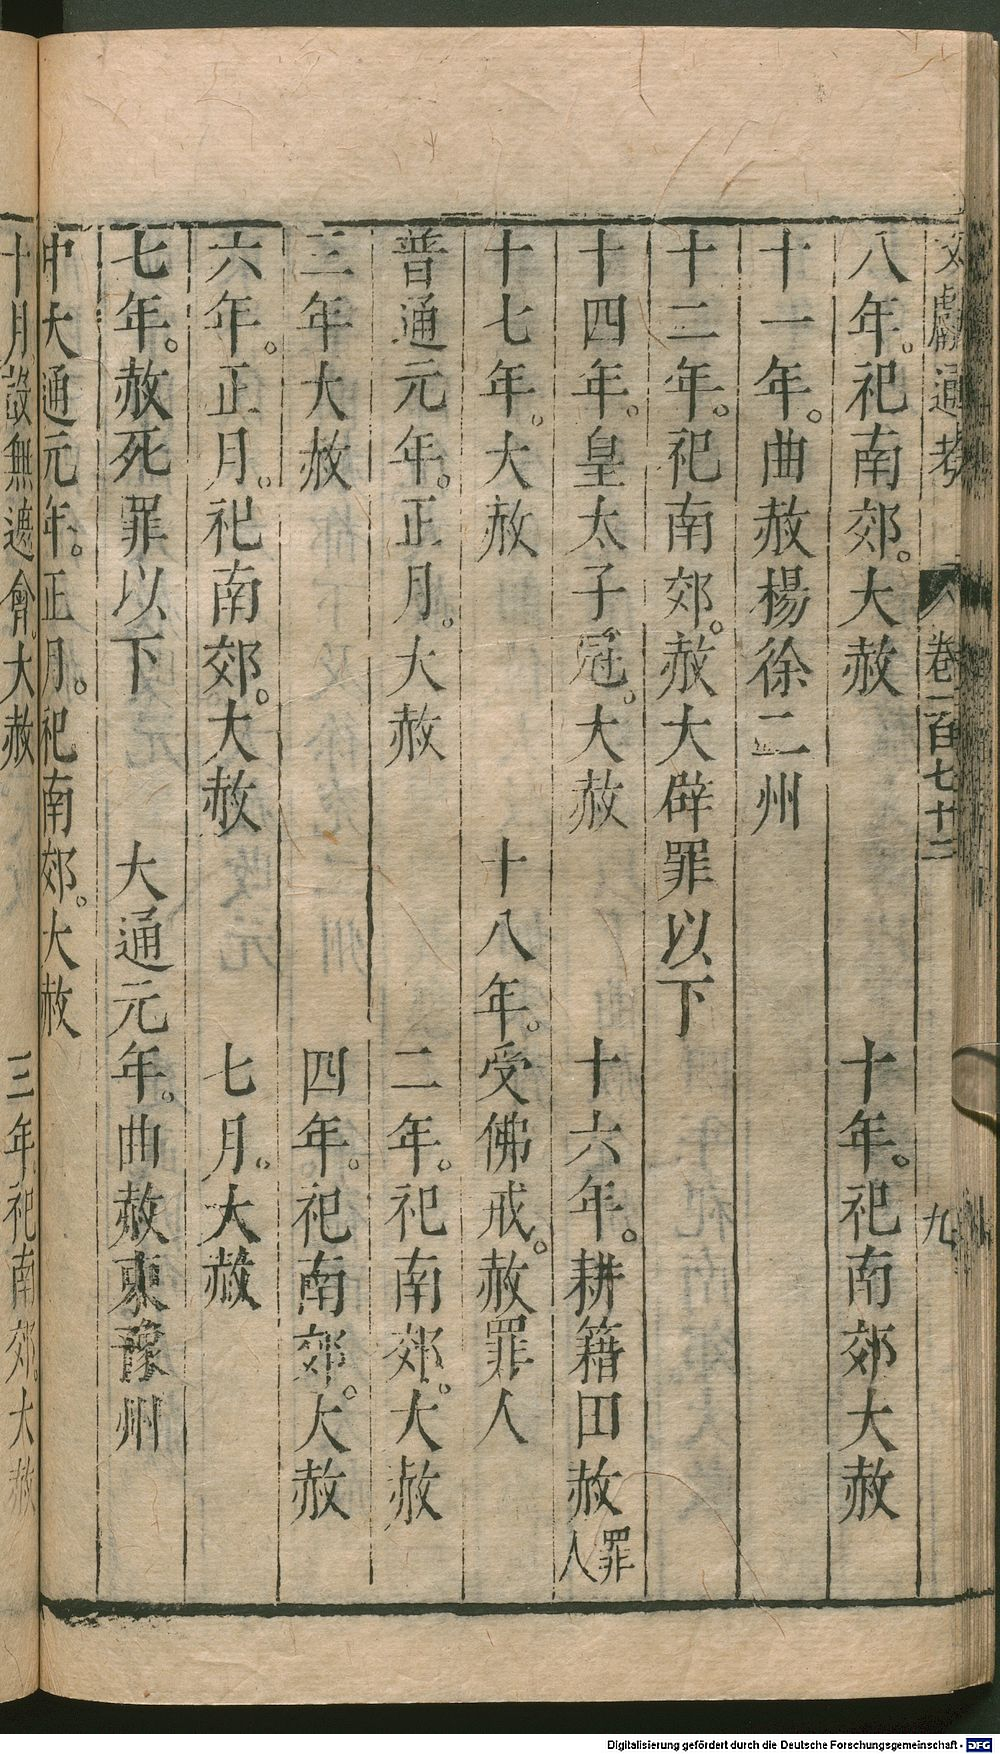 文獻通考 卷一百七十二 九
八年。祀南郊。大赦 十年。祀南郊大赦
十一年。曲赦楊徐二州
十二年。祀南郊。赦大辟罪以下
十四年。皇太子冠。大赦 十六年。耕籍田赦罪人
十七年。大赦 十八年。受佛戒。赦罪人
普通元年。正月。大赦 二年。祀南郊。大赦
三年大赦 四年。祀南郊。大赦
六年。正月。祀南郊。大赦 七月。大赦
七年。赦死罪以下 大通元年。曲赦東豫州
中大通元年。正月。祀南郊。大赦
十月設無遮會。大赦 三年祀南郊。大赦
Digitalisierung gefördert durch die Deutsche Forschungsgemeinschaft - DFG